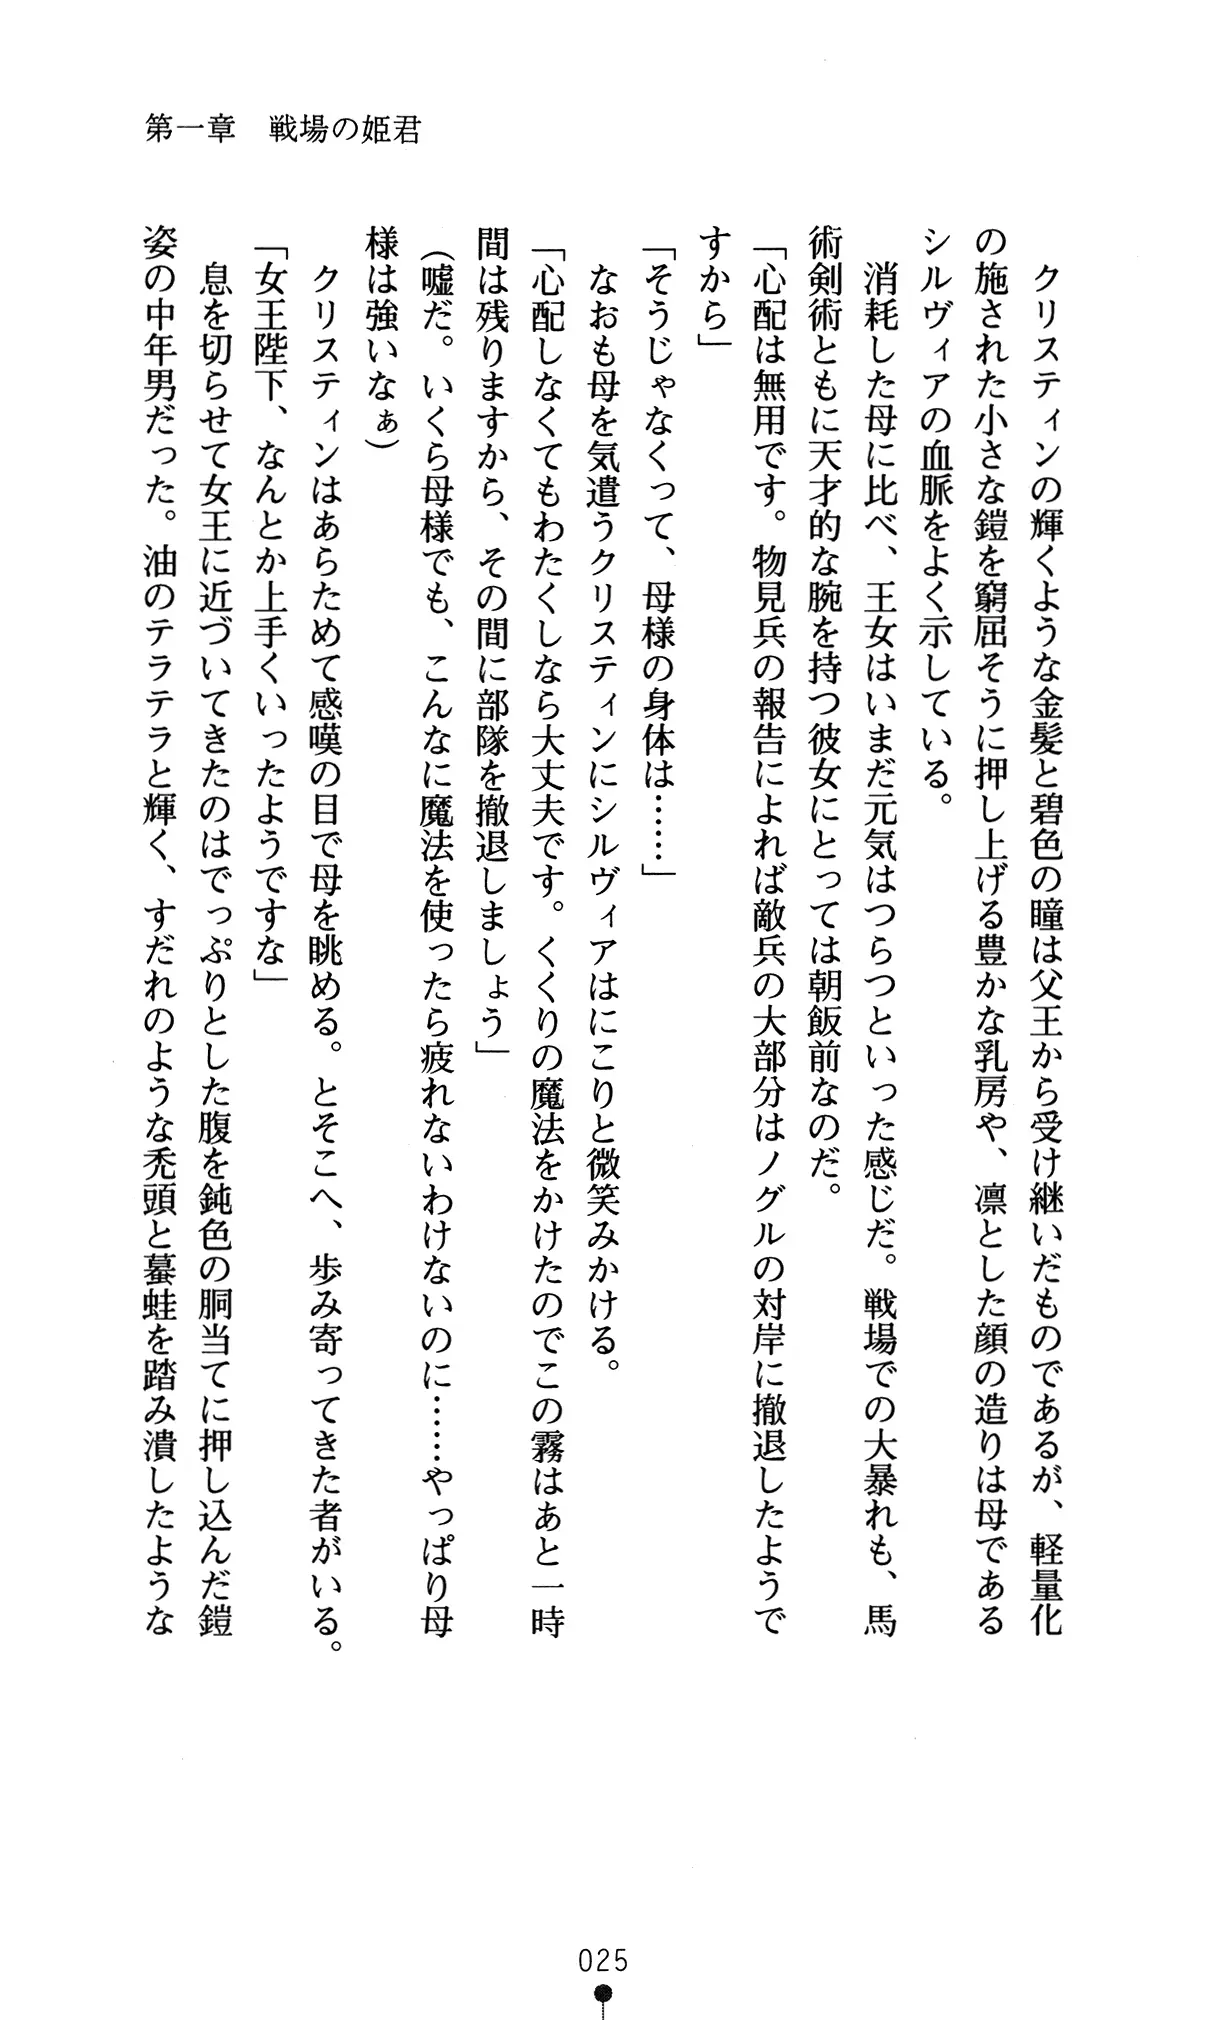 第一章　戦場の姫君
　クリスティンの輝くような金髪と碧色の瞳は父王から受け継いだものであるが、軽量化
の施された小さな鎧を窮屈そうに押し上げる豊かな乳房や、凛とした顔の造りは母である
シルヴィアの血脈をよく示している。
　消耗した母に比べ、王女はいまだ元気はつらつといった感じだ。戦場での大暴れも、馬
術剣術ともに天才的な腕を持つ彼女にとっては朝飯前なのだ。
「心配は無用です。物見兵の報告によれば敵兵の大部分はノグルの対岸に撤退したようで
すから」
「そうじゃなくって、母様の身体は……」
　なおも母を気遣うクリスティンにシルヴィアはにこりと微笑みかける。
「心配しなくてもわたくしなら大丈夫です。くくりの魔法をかけたのでこの霧はあと一時
間は残りますから、その間に部隊を撤退しましょう」
（嘘だ。いくら母様でも、こんなに魔法を使ったら疲れないわけないのに……やっぱり母
様は強いなぁ）
　クリスティンはあらためて感嘆の目で母を眺める。とそこへ、歩み寄ってきた者がいる。
「女王陛下、なんとか上手くいったようですな」
　息を切らせて女王に近づいてきたのはでっぷりとした腹を鈍色の胴当てに押し込んだ鎧
姿の中年男だった。油のテラテラと輝く、すだれのような禿頭と蟇蛙を踏み潰したような
025